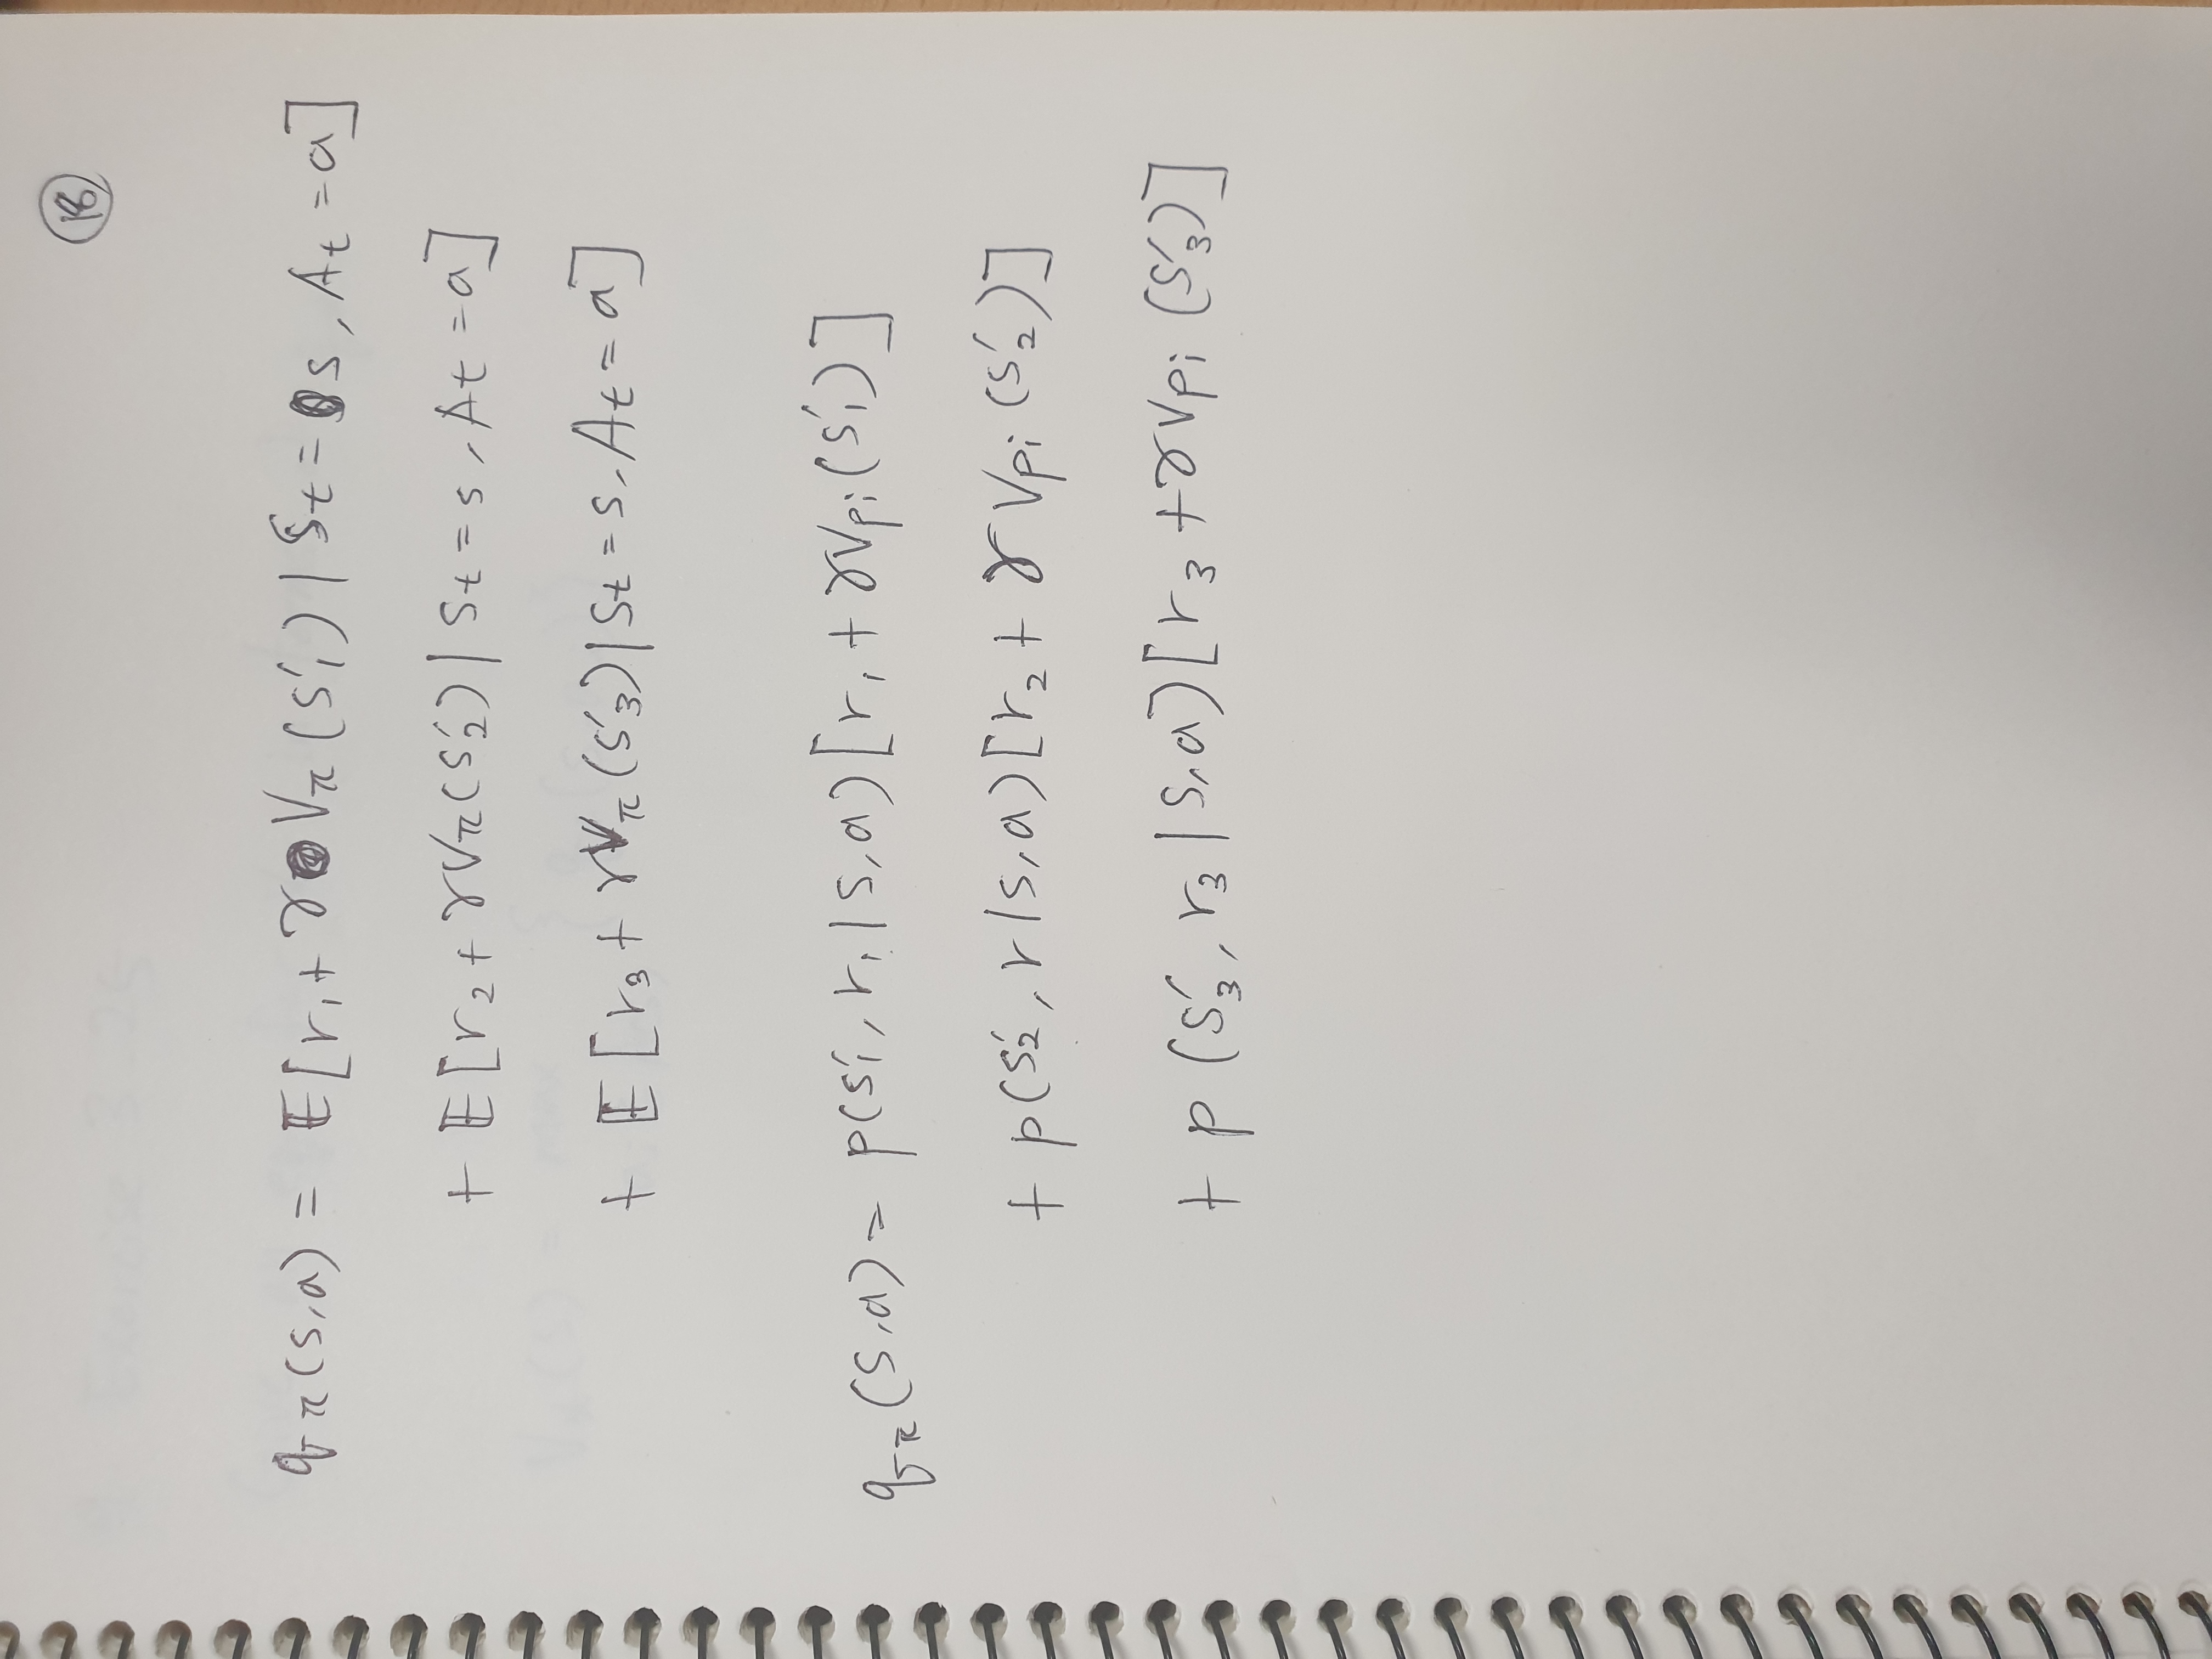 18
qπ(s,a) = E[r₁ + γ Vπ(s′₁) | St = s, At = a]
+ E[r₂ + γVπ(s′₂) | St = s, At = a]
+ E[r₃ + γVπ(s′₃) | St = s, At = a]
qπ(s,a) = p(s′₁, r₁ | s,a)[r₁ + γVpi(s′₁)]
+ p(s′₂, r | s,a)[r₂ + γ Vpi(s′₂)]
+ p(s′₃, r₃ | s,a)[r₃ + γVpi(s′₃)]